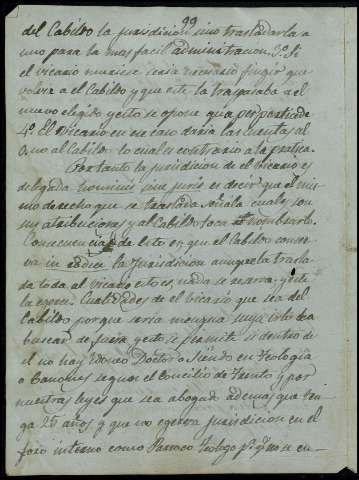 99
del Cabildo la jurisdiccion sino trasladarla a
uno para la mas facil administracion. 3º. Si
el vicario muriese seria necesario fingir que
volvia a el Cabildo y que este la traspasaba al
nuevo elegido y esto se opone
4º. El Vicario en ese caso daria las cuentas al
O. no al Cabildo lo cual es contrario a la practica.
Por tanto la jurisdiccion de el Vicario es
delegada hominis sine juris es decir que el mis
mo derecho que se traslada señala cuales son
sus atribuciones y al Cabildo toca nombrarlo.
Consecuencia de esto es que el Cabildo conser
va in radice la Jurisdiccion aunque la trasla
da toda al vicario esto es, nada se reserva y este
la egerce. Cualidades de el vicario que sea del
Cabildo porque seria mengua suya esto sea
buscar de fuera y esto se permite si dentro de
el no hay Idoneo Doctor o siendo en Teologia
o Canones segun el Concilio de Trento y por
nuestras leyes que sea abogado ademas que ten
ga 25 años y que no egerza jurisdiccion en el
foro interno como Parroco Teologo pº. qº. no se en-